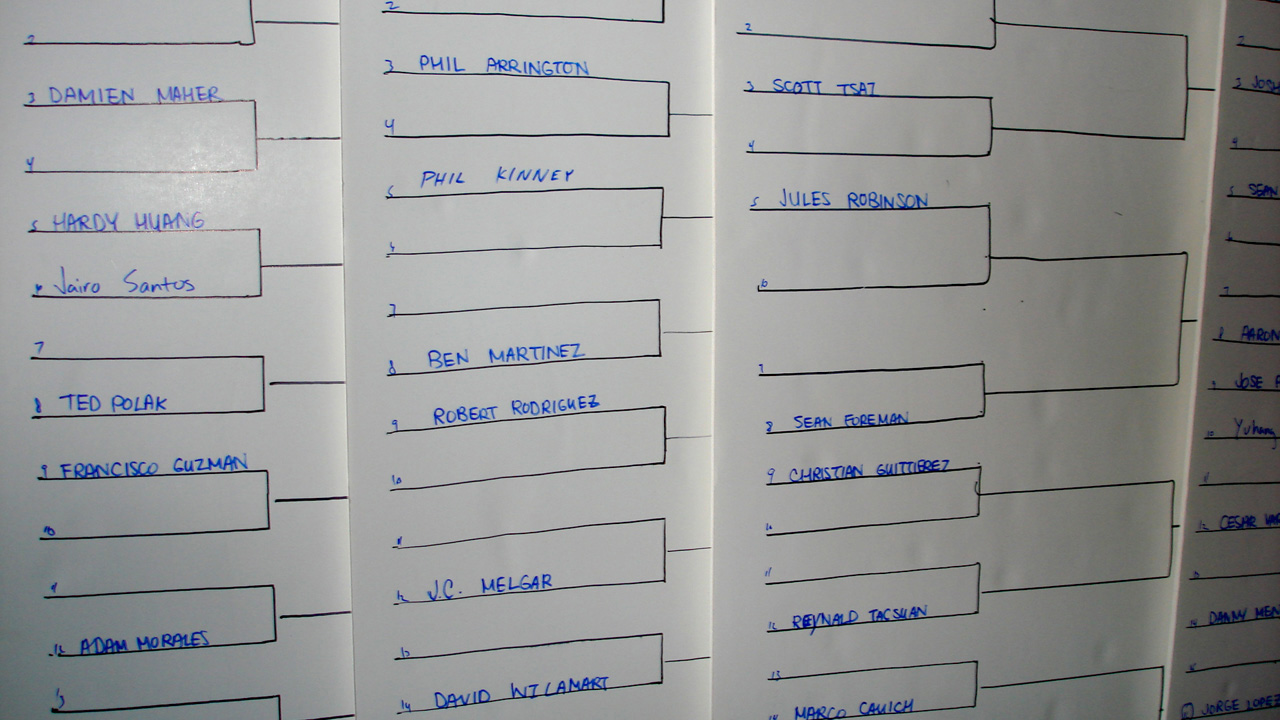 2
3 DAMIEN MAHER
4
5 HARDY HUANG
Jairo Santos
7
8 TED POLAK
9 FRANCISCO GUZMAN
10
11
12 ADAM MORALES
13
2
3 PHIL ARRINGTON
4
5 PHIL KINNEY
6
7
8 BEN MARTINEZ
9 ROBERT RODRIGUEZ
10
11
12 J.C. MELGAR
13
14 DAVID WILAMART
2
3 SCOTT TSAI
4
5 JULES ROBINSON
6
7
8 SEAN FOREMAN
9 CHRISTIAN GUITTIEREZ
10
11
12 REYNALD TACSUAN
13
14 MARCO CAUICH
2
3 JOSH
4
5 SEAN
6
7
8 AARON
9 JOSE F
10 Yuhang
11
12 CESAR
13
14 DANNY MEN
15
JORGE LOPEZ